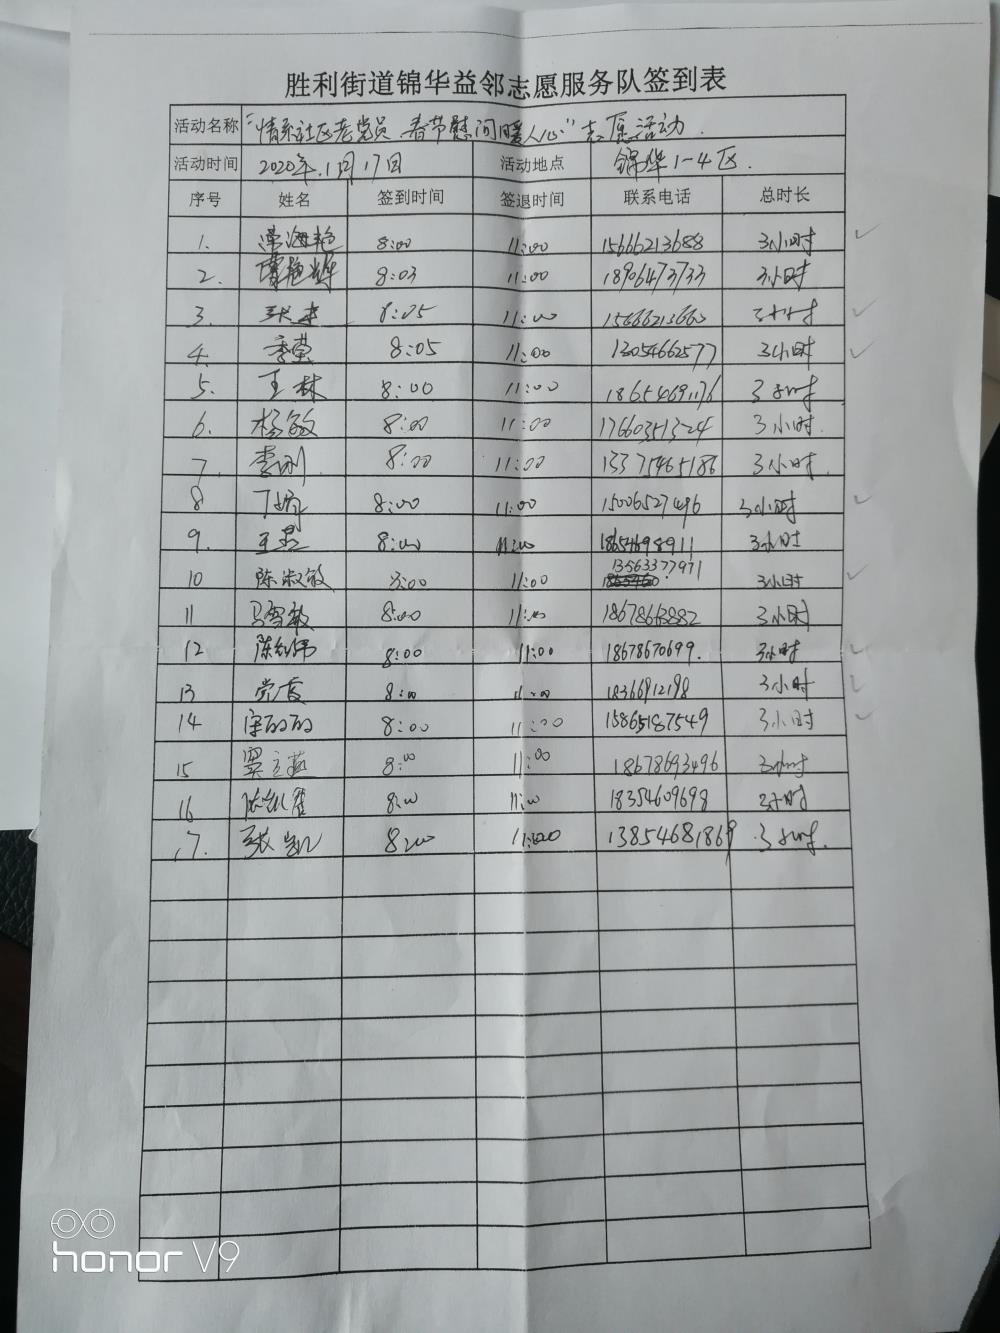 胜利街道锦华益邻志愿服务队签到表
活动名称 “情系社区老党员 春节慰问暖人心”志愿活动.
活动时间 2020年.1月17日 活动地点 锦华1-4区.
序号 姓名 签到时间 签退时间 联系电话 总时长
1. 8:00 11:00 15666213688 3小时
2. 8:03 11:00 18906473733 3小时
3. 8:05 11:00 15666213660 3小时
4. 季莹 8:05 11:00 13054662577 3小时
5. 王林 8:00 11:00 18654691176 3小时
6. 杨敏 8:00 11:00 17660351324 3小时.
7. 李刚 8:00 11:00 13375465186 3小时.
8 丁婷 8:00 11:00 15006527496 3小时
9. 8:00 11:00 18654698911 3小时
10 陈淑敏 8:00 11:00 13563377971 3小时
11 马雪敏 8:00 11:00 18678663882 3小时
12 8:00 11:00 18678670699. 3小时
13 党霞 8:00 11:00 18366912198 3小时
14 8:00 11:00 15865187549 3小时
15 8:00 11:00 18678693496 3小时
16 8:00 11:00 18354609698 3小时
17. 张凯 8:00 11:00 13854681869 3小时.
honor V9